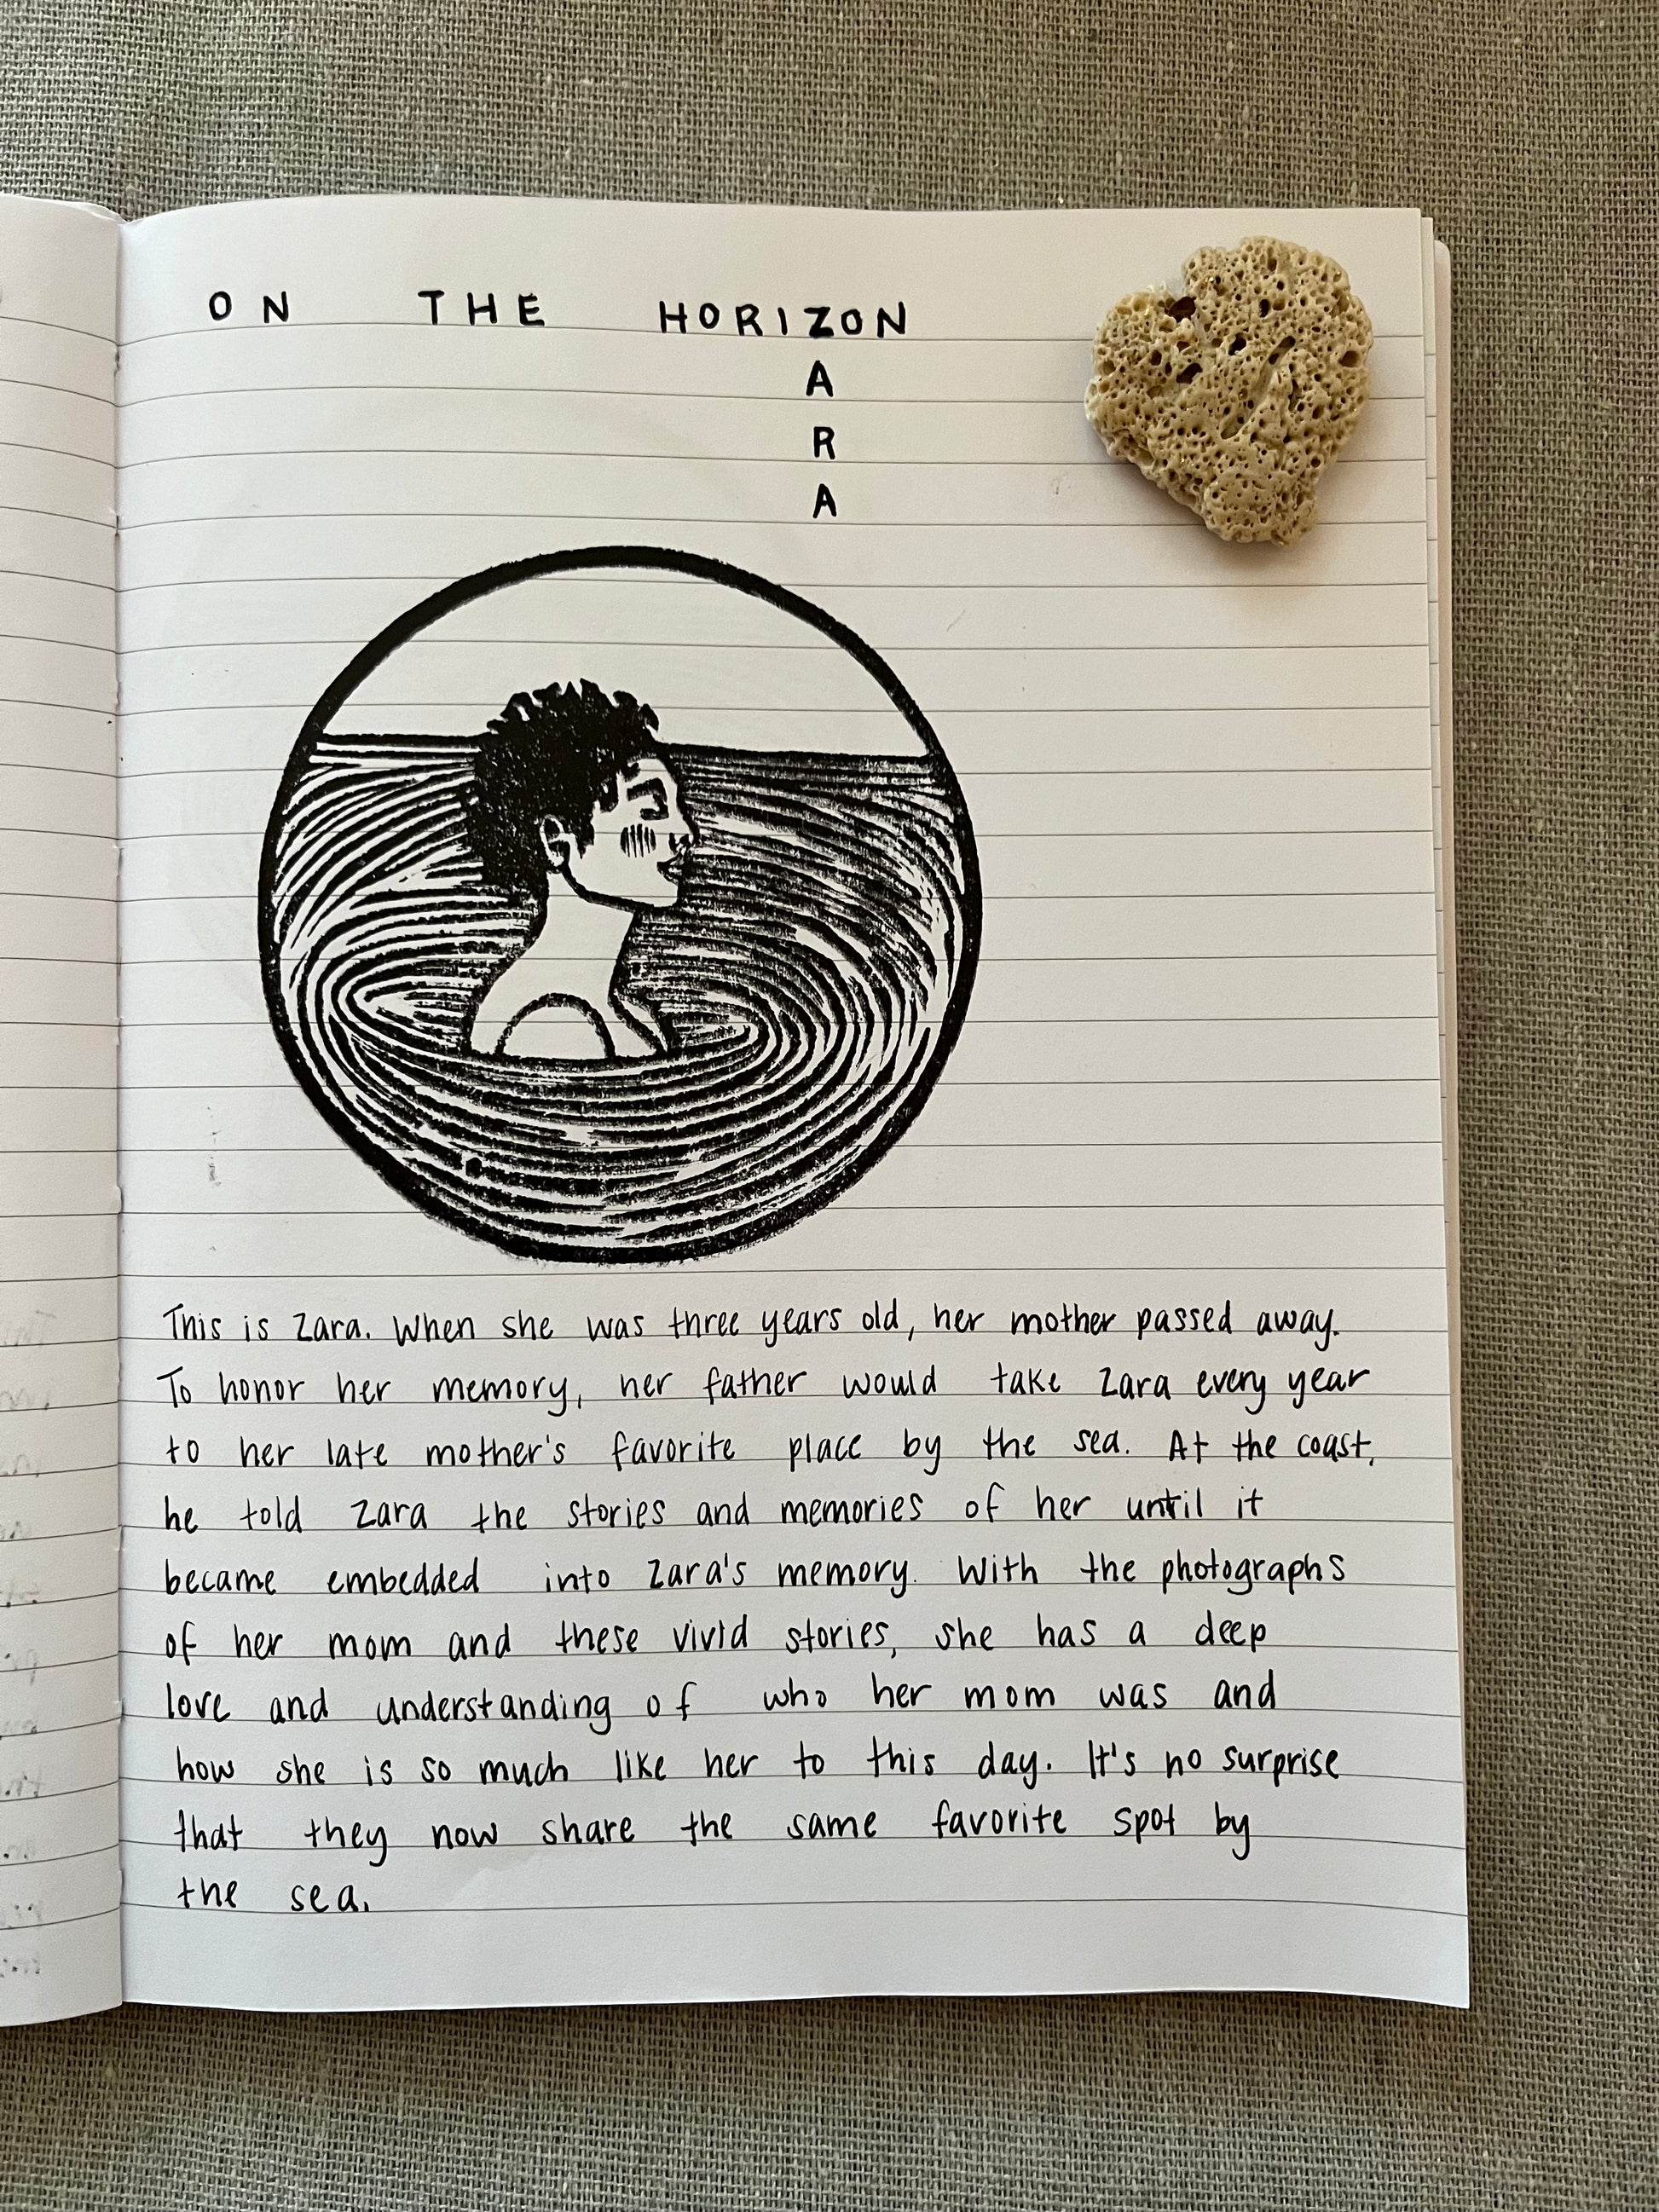 ON THE HORIZON
A
R
A
This is Zara. When she was three years old, her mother passed away.
To honor her memory, her father would take Zara every year
to her late mother's favorite place by the sea. At the coast,
he told Zara the stories and memories of her until it
became embedded into Zara's memory. With the photographs
of her mom and these vivid stories, she has a deep
love and understanding of who her mom was and
how she is so much like her to this day. It's no surprise
that they now share the same favorite spot by
the sea.